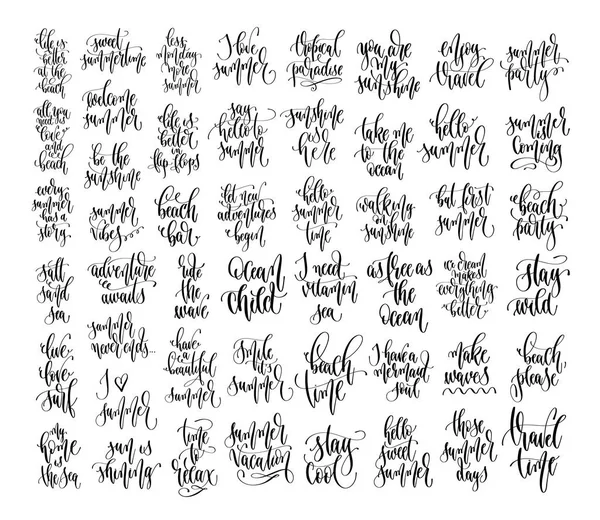 life is
better
at the
beach
all you
need is
love
and a
beach
every
summer
has a
story
salt
sand
sea
live,
love
surf
my
home
is
the sea
sweet
summertime
welcome
summer
be the
sunshine
summer
vibes
adventure
awaits
summer
never ends...
I
summer
sun is
shining
less
monday
more
summer
life is
better
in
flip flops
beach
bar
ride
the
wave
have
a
beautiful
summer
time
to
relax
I love
summer
say
hello to
summer
let new
adventures
begin
Ocean
child
smile
it's
summer
summer
vacation
tropical
paradise
sunshine
is
here
hello
summer
time
I need
vitamin
sea
beach
time
stay
cool
you are
my
sunshine
take me
to the
ocean
walking
on
sunshine
as free as
the
Ocean
I have a
mermaid
soul
hello
sweet
summer
enjoy
travel
hello
summer
but first
summer
ice cream
makes
everything
better
make
waves
those
summer
days
summer
party
summer
is
coming
beach
party
stay
wild
beach
please
travel
time